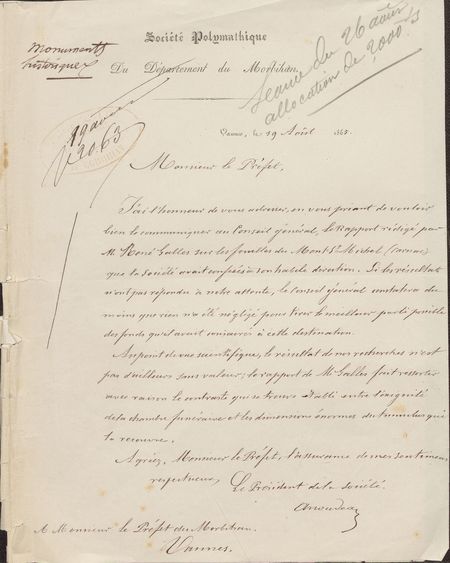 Monuments
historiques
Société Polymathique
Du Département du Morbihan.
Séance du 26 août
allocation de 2000 fs
19 août
2063
Vannes, le 19 Août 186
Monsieur le Préfet,
J'ai l'honneur de vous adresser, en vous priant de vouloir
bien le communiquer au Conseil général, le Rapport rédigé par
M. René Galles sur les fouilles du Mont St Michel (Carnac)
que la Société avait confiées à son habile direction. Si les résultats
n'ont pas répondu à notre attente, le Conseil général constatera du
moins que rien n'a été négligé pour tirer le meilleur parti possible
des fonds qu'il avait consacrés à cette destination.
Au point de vue scientifique, le résultat de nos recherches n'est
pas d'ailleurs sans valeur; le rapport de Mr Galles fait ressortir
avec raison le contraste qui se trouve établi entre l'exiguité
de la chambre funéraire et les dimensions énormes du tumulus qui
la recouvre.
Agréez, Monsieur le Préfet, l'assurance de mes sentimens
respectueux,
Le Président de la Société.
A Monsieur le Préfet du Morbihan.
Vannes.